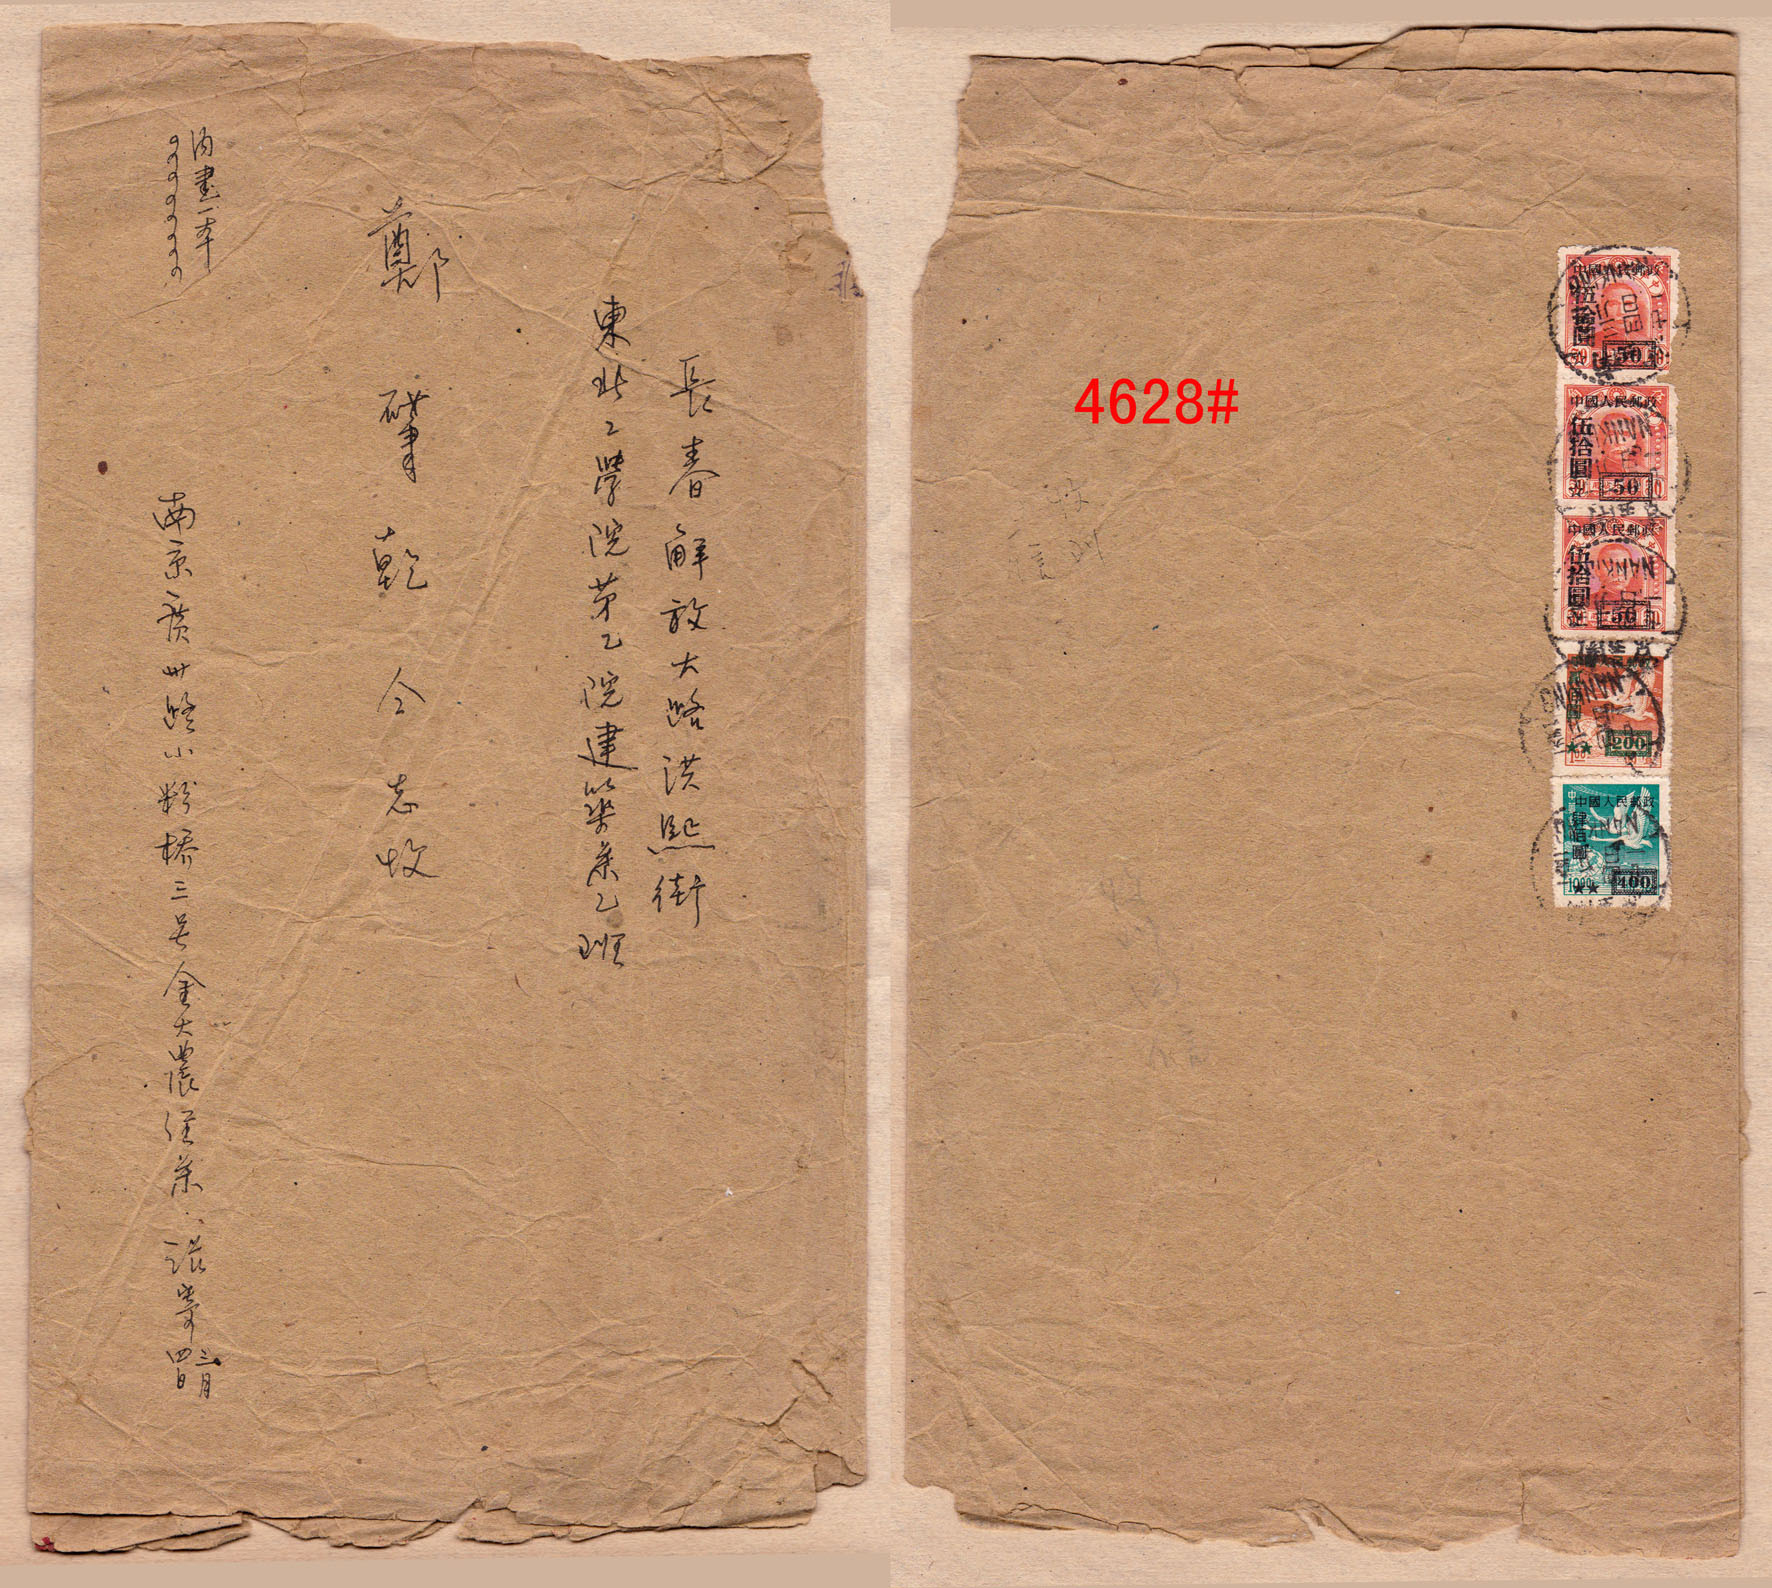 長春解放大路洪熙街
東北工學院第乙院建築系乙班
鄭
肇乾仝志收
內書一本
南京廣州路小粉橋三号金大農經系 張寄
三月
四日
4628#
中國人民郵政
伍拾圓
50
中國人民郵政
伍拾圓
50
中國人民郵政
伍拾圓
50
200
中國人民郵政
肆佰圓
400
NANKING